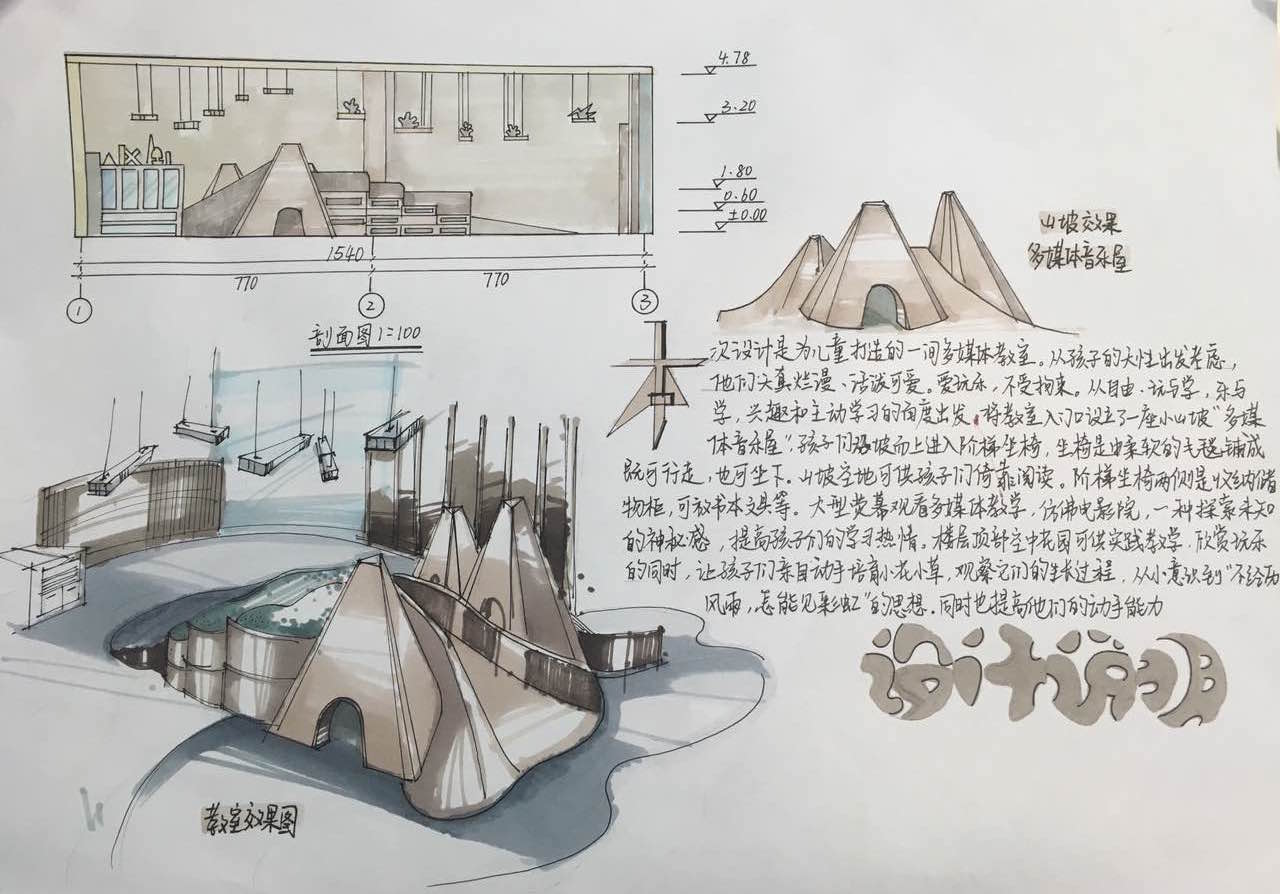 4.78
3.20
1.80
0.60
±0.00
1540
770
770
1
2
3
剖面图1:100
山坡效果
多媒体音乐屋
次设计是为儿童打造的一间多媒体教室。从孩子的天性出发考虑,
他们天真烂漫、活泼可爱。爱玩乐,不受拘束。从自由·玩与学,乐与
学,兴趣和主动学习的角度出发.将教室入门口设立了一座小山坡"多媒
体音乐屋",孩子们沿坡而上进入阶梯坐椅,坐椅是由柔软的毛毯铺成
既可行走,也可坐下。山坡空地可供孩子们倚靠阅读。阶梯坐椅两侧是收纳储
物柜,可放书本文具等。大型荧幕观看多媒体教学,仿佛电影院,一种探索未知
的神秘感,提高孩子们的学习热情。楼层顶部空中花园可供实践教学.欣赏玩乐
的同时,让孩子们亲自动手培育小花小草,观察它们的生长过程,从小意识到"不经历
风雨,怎能见彩虹"的思想.同时也提高他们的动手能力
设计说明
教室效果图